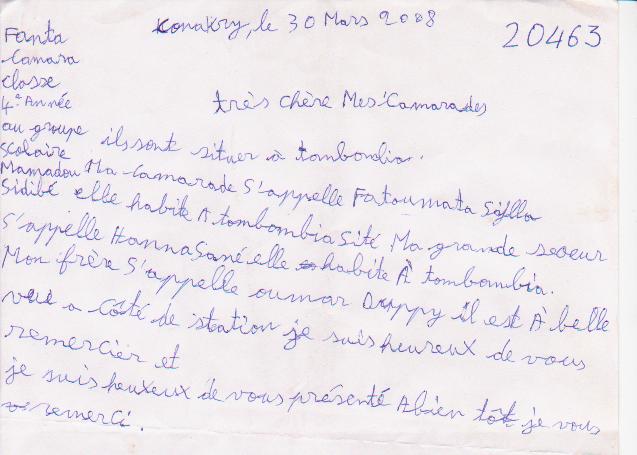 Conakry, le 30 Mars 2008
20463
Fanta
Camara
classe
4e Année
au groupe
Scolaire
Mamadou
Sidibé
très chère Mes Camarades
ils sont situer à tombondia.
Ma Camarade S'appelle Fatoumata Sylla
elle habite A tombombia Sité Ma grande soeur
S'appelle Hanna Sané elle habite À tombombia.
Mon frère S'appelle oumar Dyppy il est À belle
vue a côté de station je suis heureux de vous
remercier et
je suis heuxeux de vous présenté A bien tôt je vous
remerci.